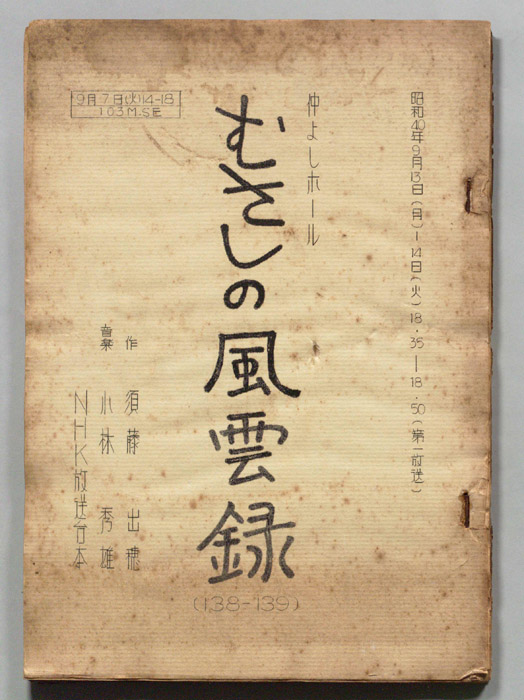 昭和40年9月13日(月)-14日(火)18.35-18.50(第一放送)
仲よしホール
むさしの風雲録
(138-139)
9月7日(火)14-18
103M.SE
作 須藤出穂
音楽 小林秀雄
NHK放送台本